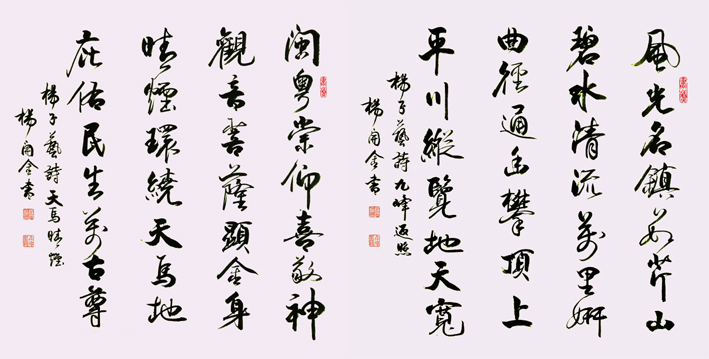 風光名鎮芹山
碧水清流萬里妍
曲徑通幽攀頂上
平川縱覽地天寬
楊子藝詩九峰返照
楊金書
閩粵崇仰喜敬神
觀音菩薩顯金身
晴煙環繞天馬地
庇佑民生萬古尊
楊子藝詩天馬晴煙
楊金書